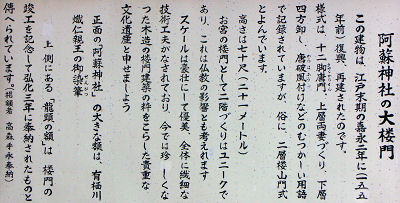 阿蘇神社の大楼門
この建物は、江戸末期の嘉永二年に(一五五
年前)復興、再建されたのです。
様式は、十二脚唐門、上層両妻づくり、下層
四方卸し、唐破風付けなどのむつかしい用語
で記録されていますが、俗に、二層楼山門式
とよんでいます。
高さは七十尺(二十一メートル)
お宮の楼門として二階づくりはユニークで
あり、これは仏教の影響とも考えます
スケールは豪壮にして優美、全体に繊細な
技術工夫がなされており、今では珍しくな
った木造の楼門建築の粋をこらした貴重な
文化遺産と申せましょう
正面の「阿蘇神社」の大きな額は、有栖川
熾仁親王の御染筆
上側にある「龍頭の額」は 楼門の
竣工を記念して弘化三年に奉納されたものと
傳へられています。(揮額者 高森平永奉納)